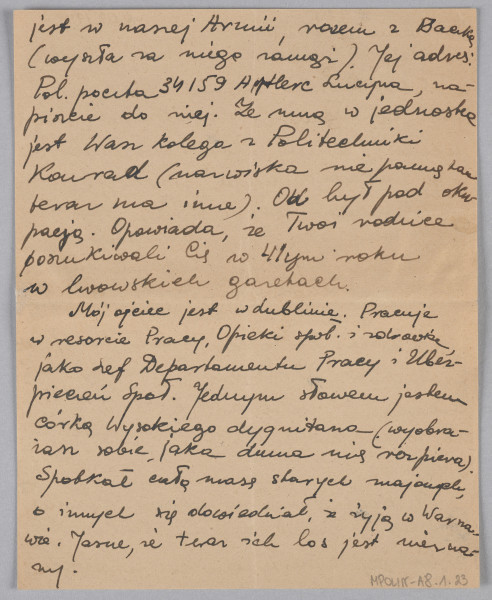 jest w naszej Armii, razem z Backą
(wyszła za niego zamąż). Jej adres:
Pol. poczta 34159 Adlerc Lucyna, na-
piszcie do niej. Ze mną w jednostce
jest Wasz kolega z Politechniki
Konrad (nazwiska nie pamiętam
teraz ma inne). On był pod oku-
pacją. Opowiada, że Twoi rodzice
poszukiwali Cię w 41ym roku
w lwowskich gazetach.
Mój ojciec jest w Lublinie. Pracuje
w resorcie Pracy, Opieki społ. i zdrowia
jako szef Departamentu Pracy i Ubez-
pieczeń Społ. Jednym słowem jestem
córką Wysokiego dygnitarza (wyobra-
żasz sobie, jaka duma mię rozpiera).
Spotkał całą masę starych znajomych,
o innych się dowiedział, że żyją w Warsza-
wie. Jasne, że teraz ich los jest niezna-
ny.
MPOLIN-A8.1.23